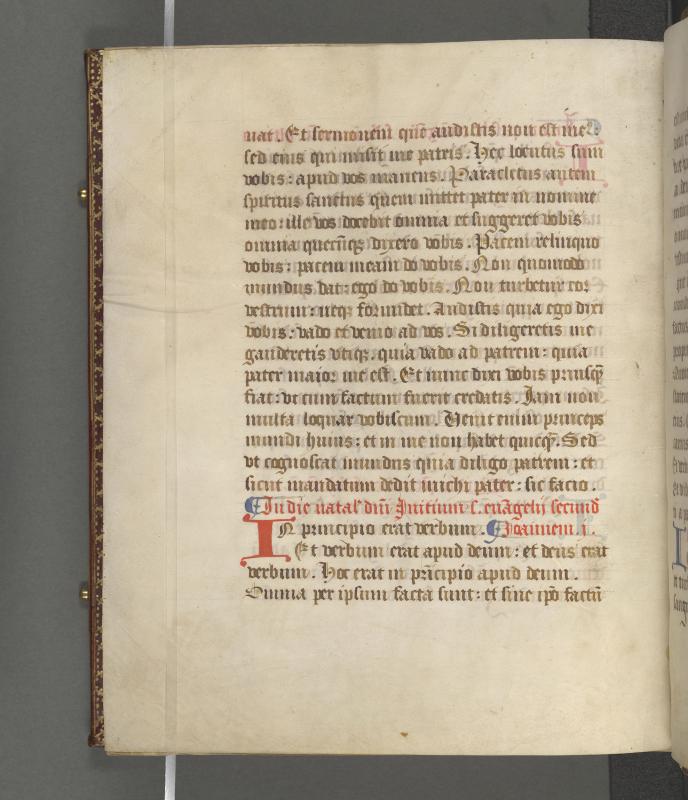 uat. Et sermonem quē audistis non est meꝰ:
sed eius qui misit me patris. Hec locutus sum
vobis: apud vos manens. Paracletus autem
spiritus sanctus quem mittet pater in nomine
meo: ille vos docebit omnia et suggeret vobis
omnia quecūqꝫ dixero vobis. Pacem relinquo
vobis: pacem meam do vobis. Non quomodo
mundus dat: ego do vobis. Non turbetur cor
vestrum: neqꝫ formidet. Audistis quia ego dixi
vobis: vado et venio ad vos. Si diligeretis me
gauderetis vtiqꝫ. quia vado ad patrem: quia
pater maior me est. Et nunc dixi vobis priusqꝫ
fiat: vt cum factum fuerit credatis. Iam non
multa loquar vobiscum. Venit enim princeps
mundi huius: et in me non habet quicqꝫ. Sed
vt cognoscat mundus quia diligo patrem: et
sicut mandatum dedit michi pater: sic facio.
In die natal' dn̄i Initium s. euāgelij secund̄
IN principio erat verbum. Ioannem. i.
Et verbum erat apud deum: et deus erat
verbum. Hoc erat in prīcipio apud deum.
Omnia per ipsum facta sunt: et sine ip̄o factū